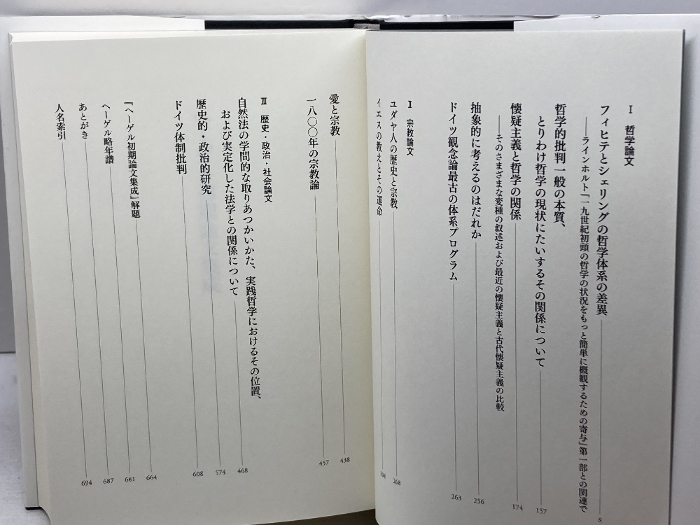 I 哲学論文
フィヒテとシェリングの哲学体系の差異 8
——ラインホルト『一九世紀初頭の哲学の状況をもっと簡単に概観するための寄与』第一部との関連で
哲学的批判一般の本質、
とりわけ哲学の現状にたいするその関係について 157
懐疑主義と哲学の関係 174
——そのさまざまな変種の叙述および最近の懐疑主義と古代懐疑主義の比較
抽象的に考えるのはだれか 256
ドイツ観念論最古の体系プログラム 263
II 宗教論文
ユダヤ人の歴史と宗教 268
イエスの教えとその運命
愛と宗教 438
一八〇〇年の宗教論 457
III 歴史・政治・社会論文
自然法の学問的な取りあつかいかた、実践哲学におけるその位置、
および実定化した法学との関係について 468
歴史的・政治的研究 574
ドイツ体制批判 608
『ヘーゲル初期論文集成』解題 664
ヘーゲル略年譜 681
あとがき 687
人名索引 694